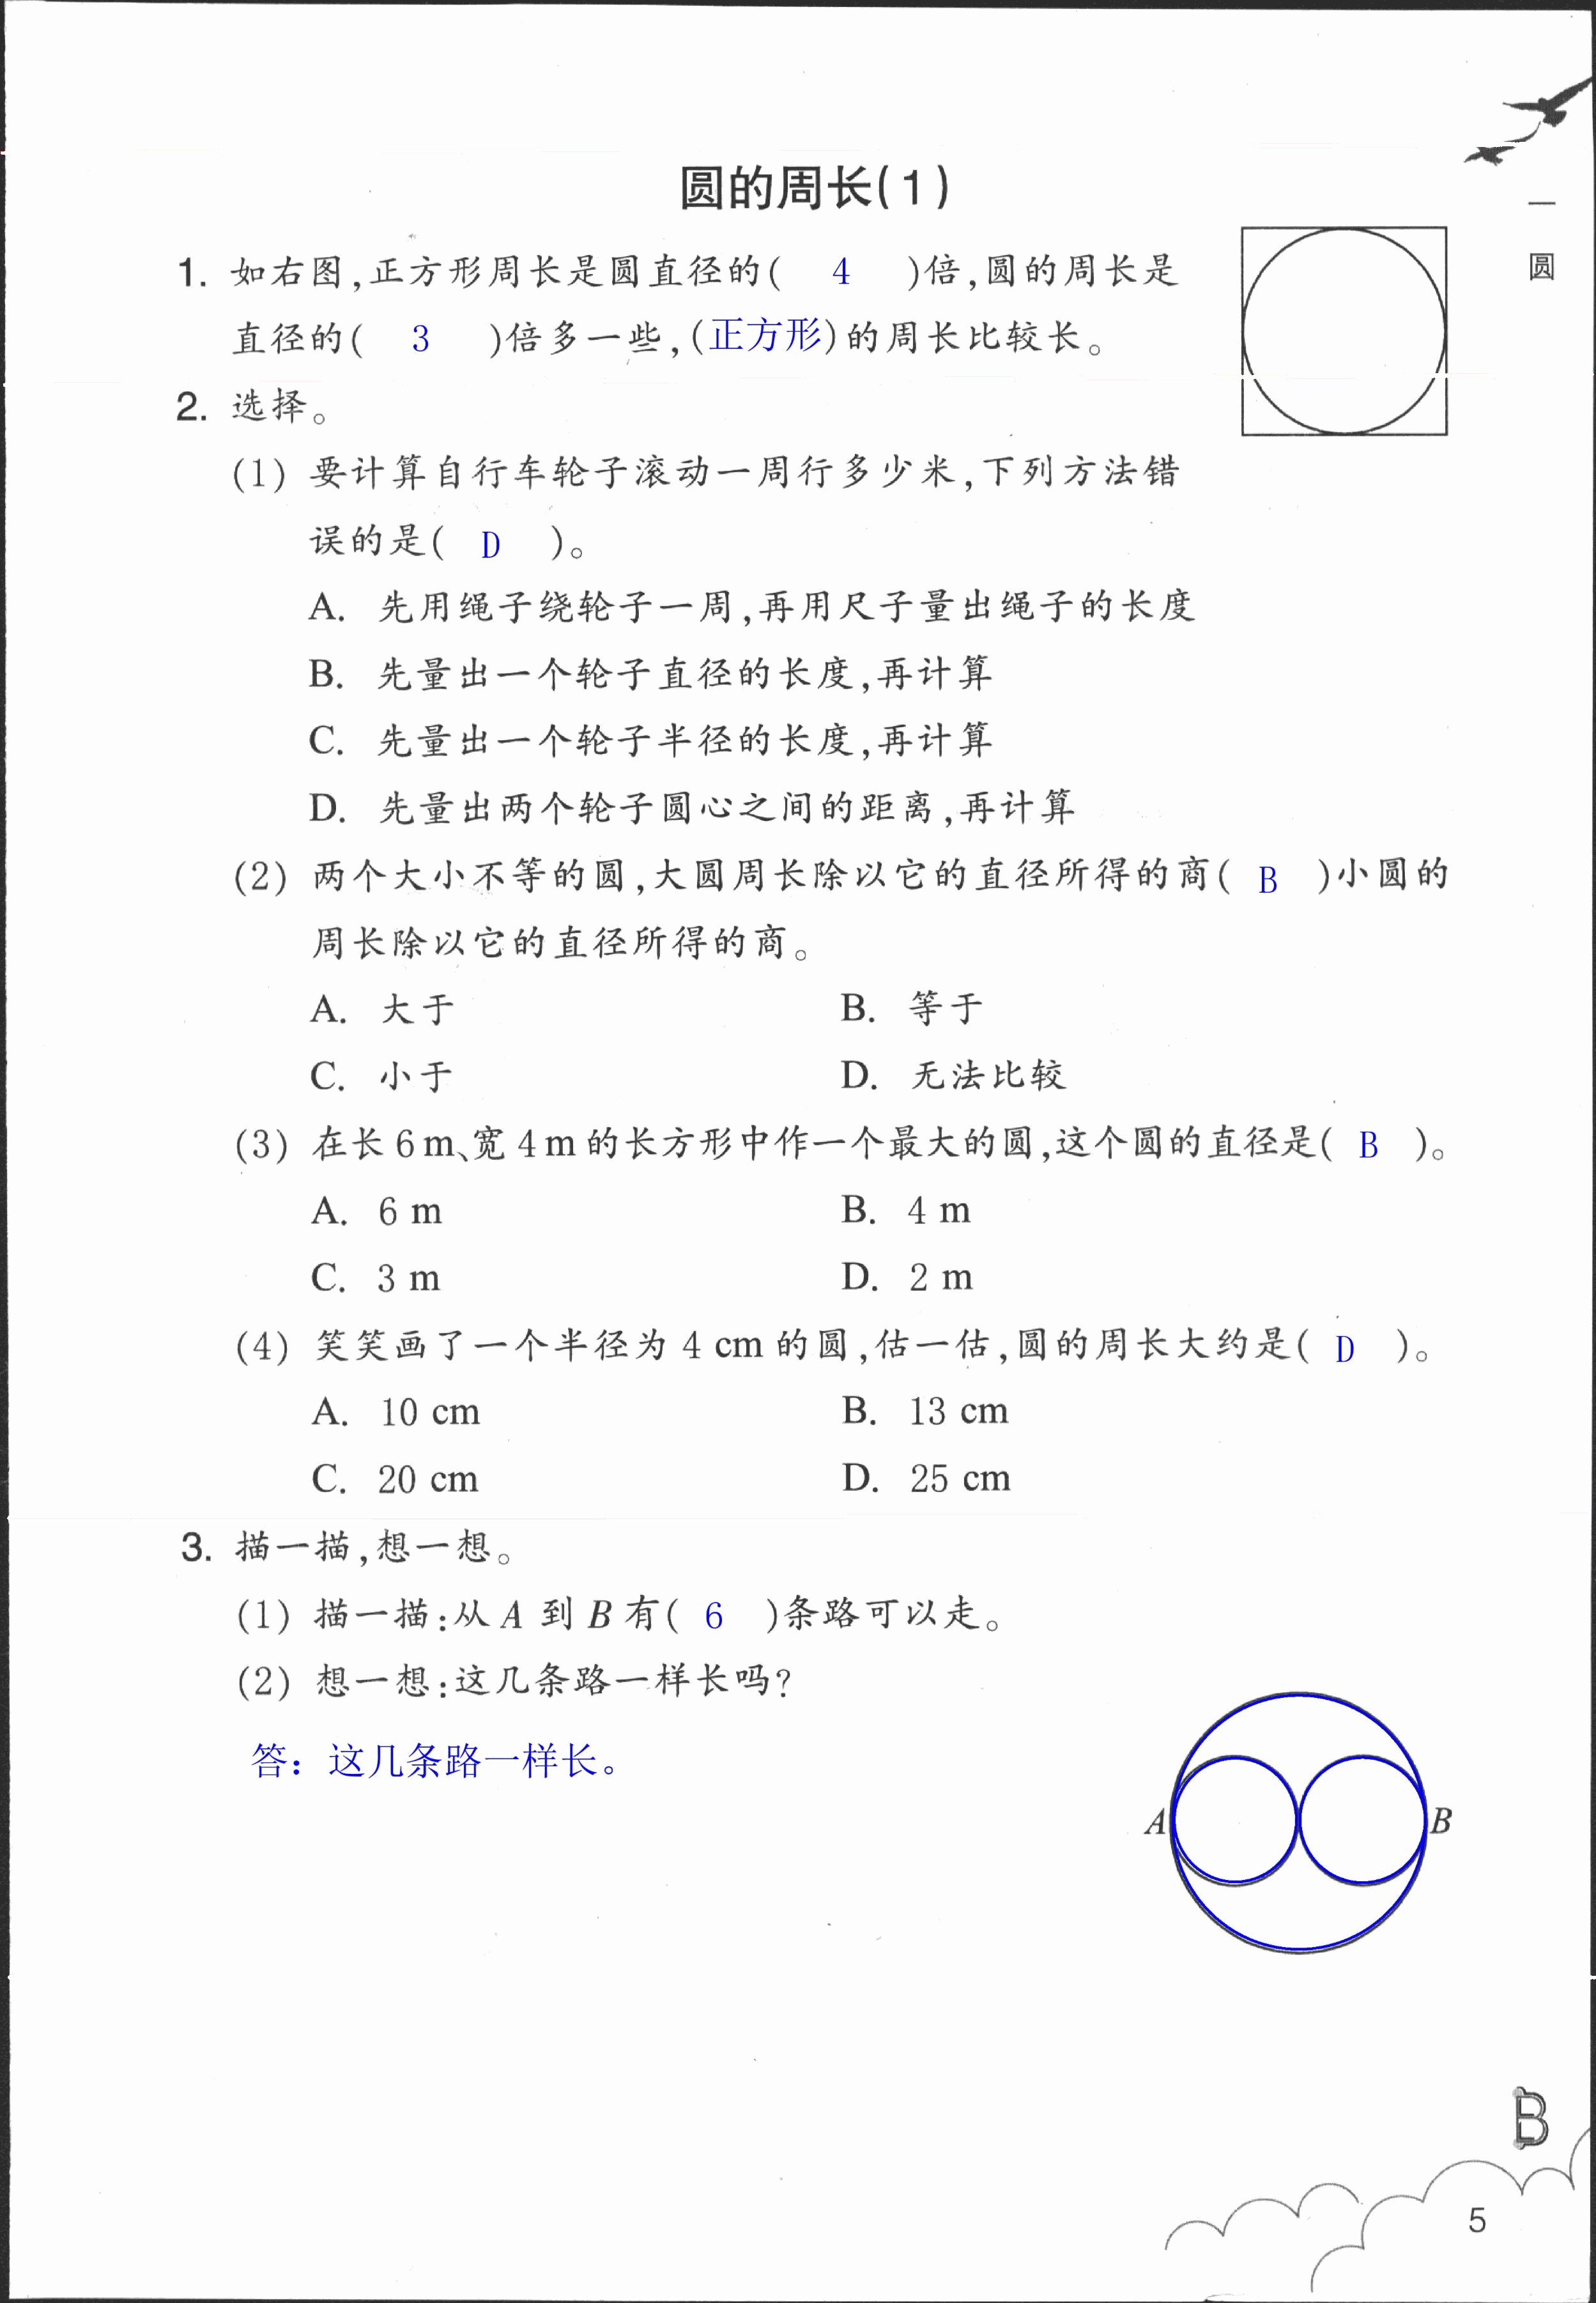 圆的周长(1)
一
圆
1. 如右图,正方形周长是圆直径的( 4 )倍,圆的周长是
直径的( 3 )倍多一些,(正方形)的周长比较长。
2. 选择。
(1) 要计算自行车轮子滚动一周行多少米,下列方法错
误的是( D )。
A. 先用绳子绕轮子一周,再用尺子量出绳子的长度
B. 先量出一个轮子直径的长度,再计算
C. 先量出一个轮子半径的长度,再计算
D. 先量出两个轮子圆心之间的距离,再计算
(2) 两个大小不等的圆,大圆周长除以它的直径所得的商( B )小圆的
周长除以它的直径所得的商。
A. 大于 B. 等于
C. 小于 D. 无法比较
(3) 在长 6 m、宽 4 m 的长方形中作一个最大的圆,这个圆的直径是( B )。
A. 6 m B. 4 m
C. 3 m D. 2 m
(4) 笑笑画了一个半径为 4 cm 的圆,估一估,圆的周长大约是( D )。
A. 10 cm B. 13 cm
C. 20 cm D. 25 cm
3. 描一描,想一想。
(1) 描一描:从 A 到 B 有( 6 )条路可以走。
(2) 想一想:这几条路一样长吗?
答：这几条路一样长。
A B
B
5